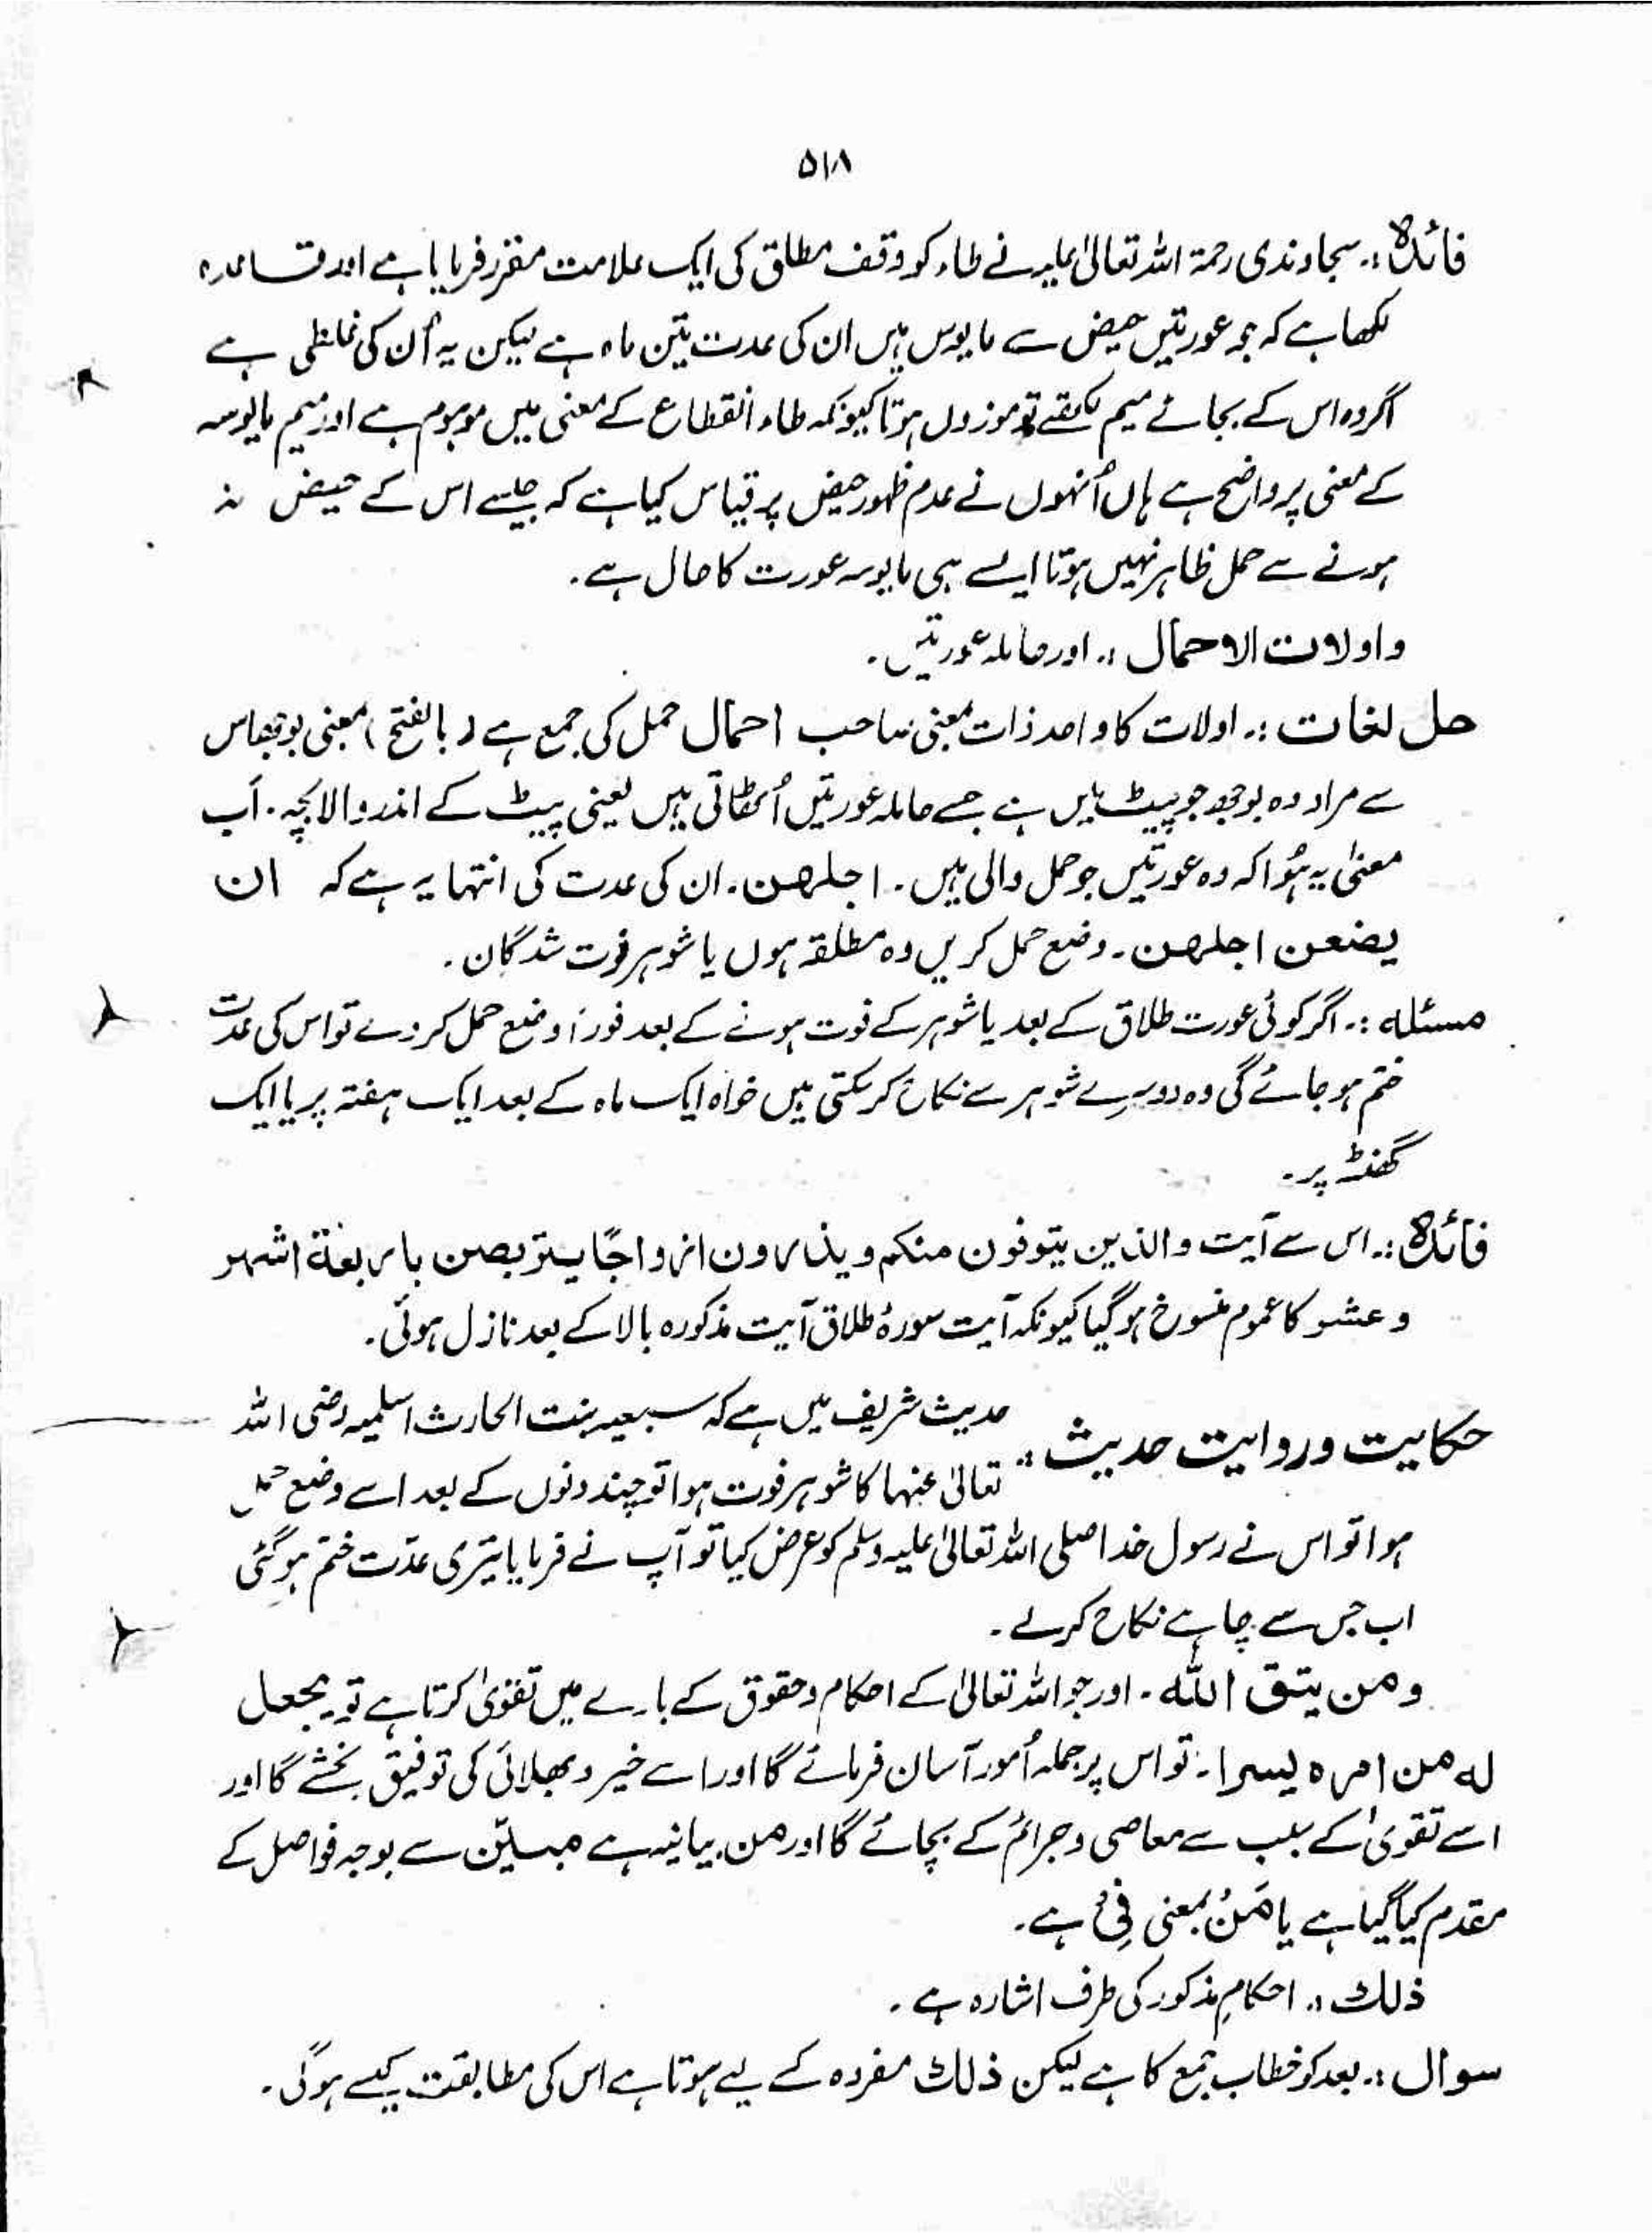 ۵۱۸
فائدہ :۔ سجاوندی رحمۃ اللہ تعالیٰ علیہ نے طاء کو وقف مطلق کی ایک علامت مقرر فرمایا ہے اور قاعدہ
لکھا ہے کہ جو عورتیں حیض سے مایوس ہیں ان کی عدت تین ماہ ہے لیکن یہ اُن کی غلطی ہے
اگر وہ اس کے بجائے میم لکھتے تو موزوں ہوتا کیونکہ طاء انقطاع کے معنی میں موہوم ہے اور میم مایوسہ
کے معنی پر واضح ہے ہاں اُنہوں نے عدم ظہور حیض پر قیاس کیا ہے کہ جیسے اس کے حیض نہ
ہونے سے حمل ظاہر نہیں ہوتا ایسے ہی مایوسہ عورت کا حال ہے ۔
واولات الاحمال :۔ اور حاملہ عورتیں ۔
حل لغات :۔ اولات کا واحد ذات بمعنی صاحب احمال حمل کی جمع ہے (بالفتح) بمعنی بوجھ اس
سے مراد وہ بوجھ جو پیٹ میں ہے جسے حاملہ عورتیں اُٹھاتی ہیں یعنی پیٹ کے اندر والا بچہ ۔ اَب
معنیٰ یہ ہُوا کہ وہ عورتیں جو حمل والی ہیں ۔ اجلھن ۔ ان کی عدت کی انتہا یہ ہے کہ ان
یضعن اجلھن ۔ وضع حمل کریں وہ مطلقہ ہوں یا شوہر فوت شدگان ۔
مسئلہ :۔ اگر کوئی عورت طلاق کے بعد یا شوہر کے فوت ہونے کے بعد فوراً وضع حمل کر دے تو اس کی عدت
ختم ہو جائے گی وہ دوسرے شوہر سے نکاح کر سکتی ہیں خواہ ایک ماہ کے بعد ایک ہفتہ پر یا ایک
گھنٹہ پر ۔
فائدہ :۔ اس سے آیت والذین یتوفون منکم ویذرون ازواجًا یتربصن باربعة اشہر
وعشر کا عموم منسوخ ہو گیا کیونکہ آیت سورۂ طلاق آیت مذکورہ بالا کے بعد نازل ہوئی ۔
حکایت و روایت حدیث :۔ حدیث شریف میں ہے کہ سبیعہ بنت الحارث اسلمیہ رضی اللہ
تعالیٰ عنہا کا شوہر فوت ہوا تو چند دنوں کے بعد اسے وضع حمل
ہوا تو اس نے رسول خدا صلی اللہ تعالیٰ علیہ وسلم کو عرض کیا تو آپ نے فرمایا تیری عدّت ختم ہو گئی
اب جس سے چاہے نکاح کر لے ۔
ومن یتق اللّٰہ ۔ اور جو اللہ تعالیٰ کے احکام و حقوق کے بارے میں تقویٰ کرتا ہے تو یجعل
له من امره یسرا ۔ تو اس پر جملہ اُمور آسان فرمائے گا اور اسے خیر و بھلائی کی توفیق بخشے گا اور
اسے تقویٰ کے سبب سے معاصی و جرائم کے بچائے گا اور من بیانیہ ہے مبیّن سے بوجہ فواصل کے
مقدم کیا گیا ہے یا مَنْ بمعنی فِیْ ہے ۔
ذلك :۔ احکامِ مذکور کی طرف اشارہ ہے ۔
سوال :۔ بعد کو خطاب جمع کا ہے لیکن ذلك مفردہ کے لیے ہوتا ہے اس کی مطابقت کیسے ہو گی ۔